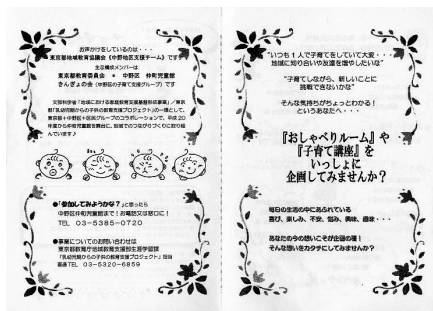 お声かけをしているのは・・・
東京都地域教育協議会《中野地区支援チーム》です
主な構成メンバーは
東京都教育委員会 ＊ 中野区 仲町児童館
きんぎょの会（中野区の子育て支援グループ）です
文部科学省「地域における家庭教育支援基盤形成事業」／東京
都「乳幼児期からの子供の教育支援プロジェクト」の一環として、
東京都＋中野区＋区民グループのコラボレーションで、平成20
年度から仲町児童館を舞台に、地域でのつながりづくりに取り組
んでいます♪
●「参加してみようかな？」と思ったら
中野区仲町児童館まで！お電話又は窓口に！
TEL 03－5385－0720
●事業についてのお問い合わせは
東京都教育庁地域教育支援部生涯学習課
「乳幼児期からの子供の教育支援プロジェクト」担当
直通TEL 03－5320－6859
“いつも１人で子育てをしていて大変・・・
地域に知り合いや友達を増やしたいな”
“子育てしながら、新しいことに
挑戦できないかな”
そんな気持ちがちょっとわかる！
というあなたへ・・・
『おしゃべりルーム』や
『子育て講座』を
いっしょに
企画してみませんか？
毎日の生活の中にあふれている
喜び、楽しみ、不安、悩み、興味、趣味・・・
あなたの今の想いこそが企画の種！
そんな想いをカタチにしてみませんか？